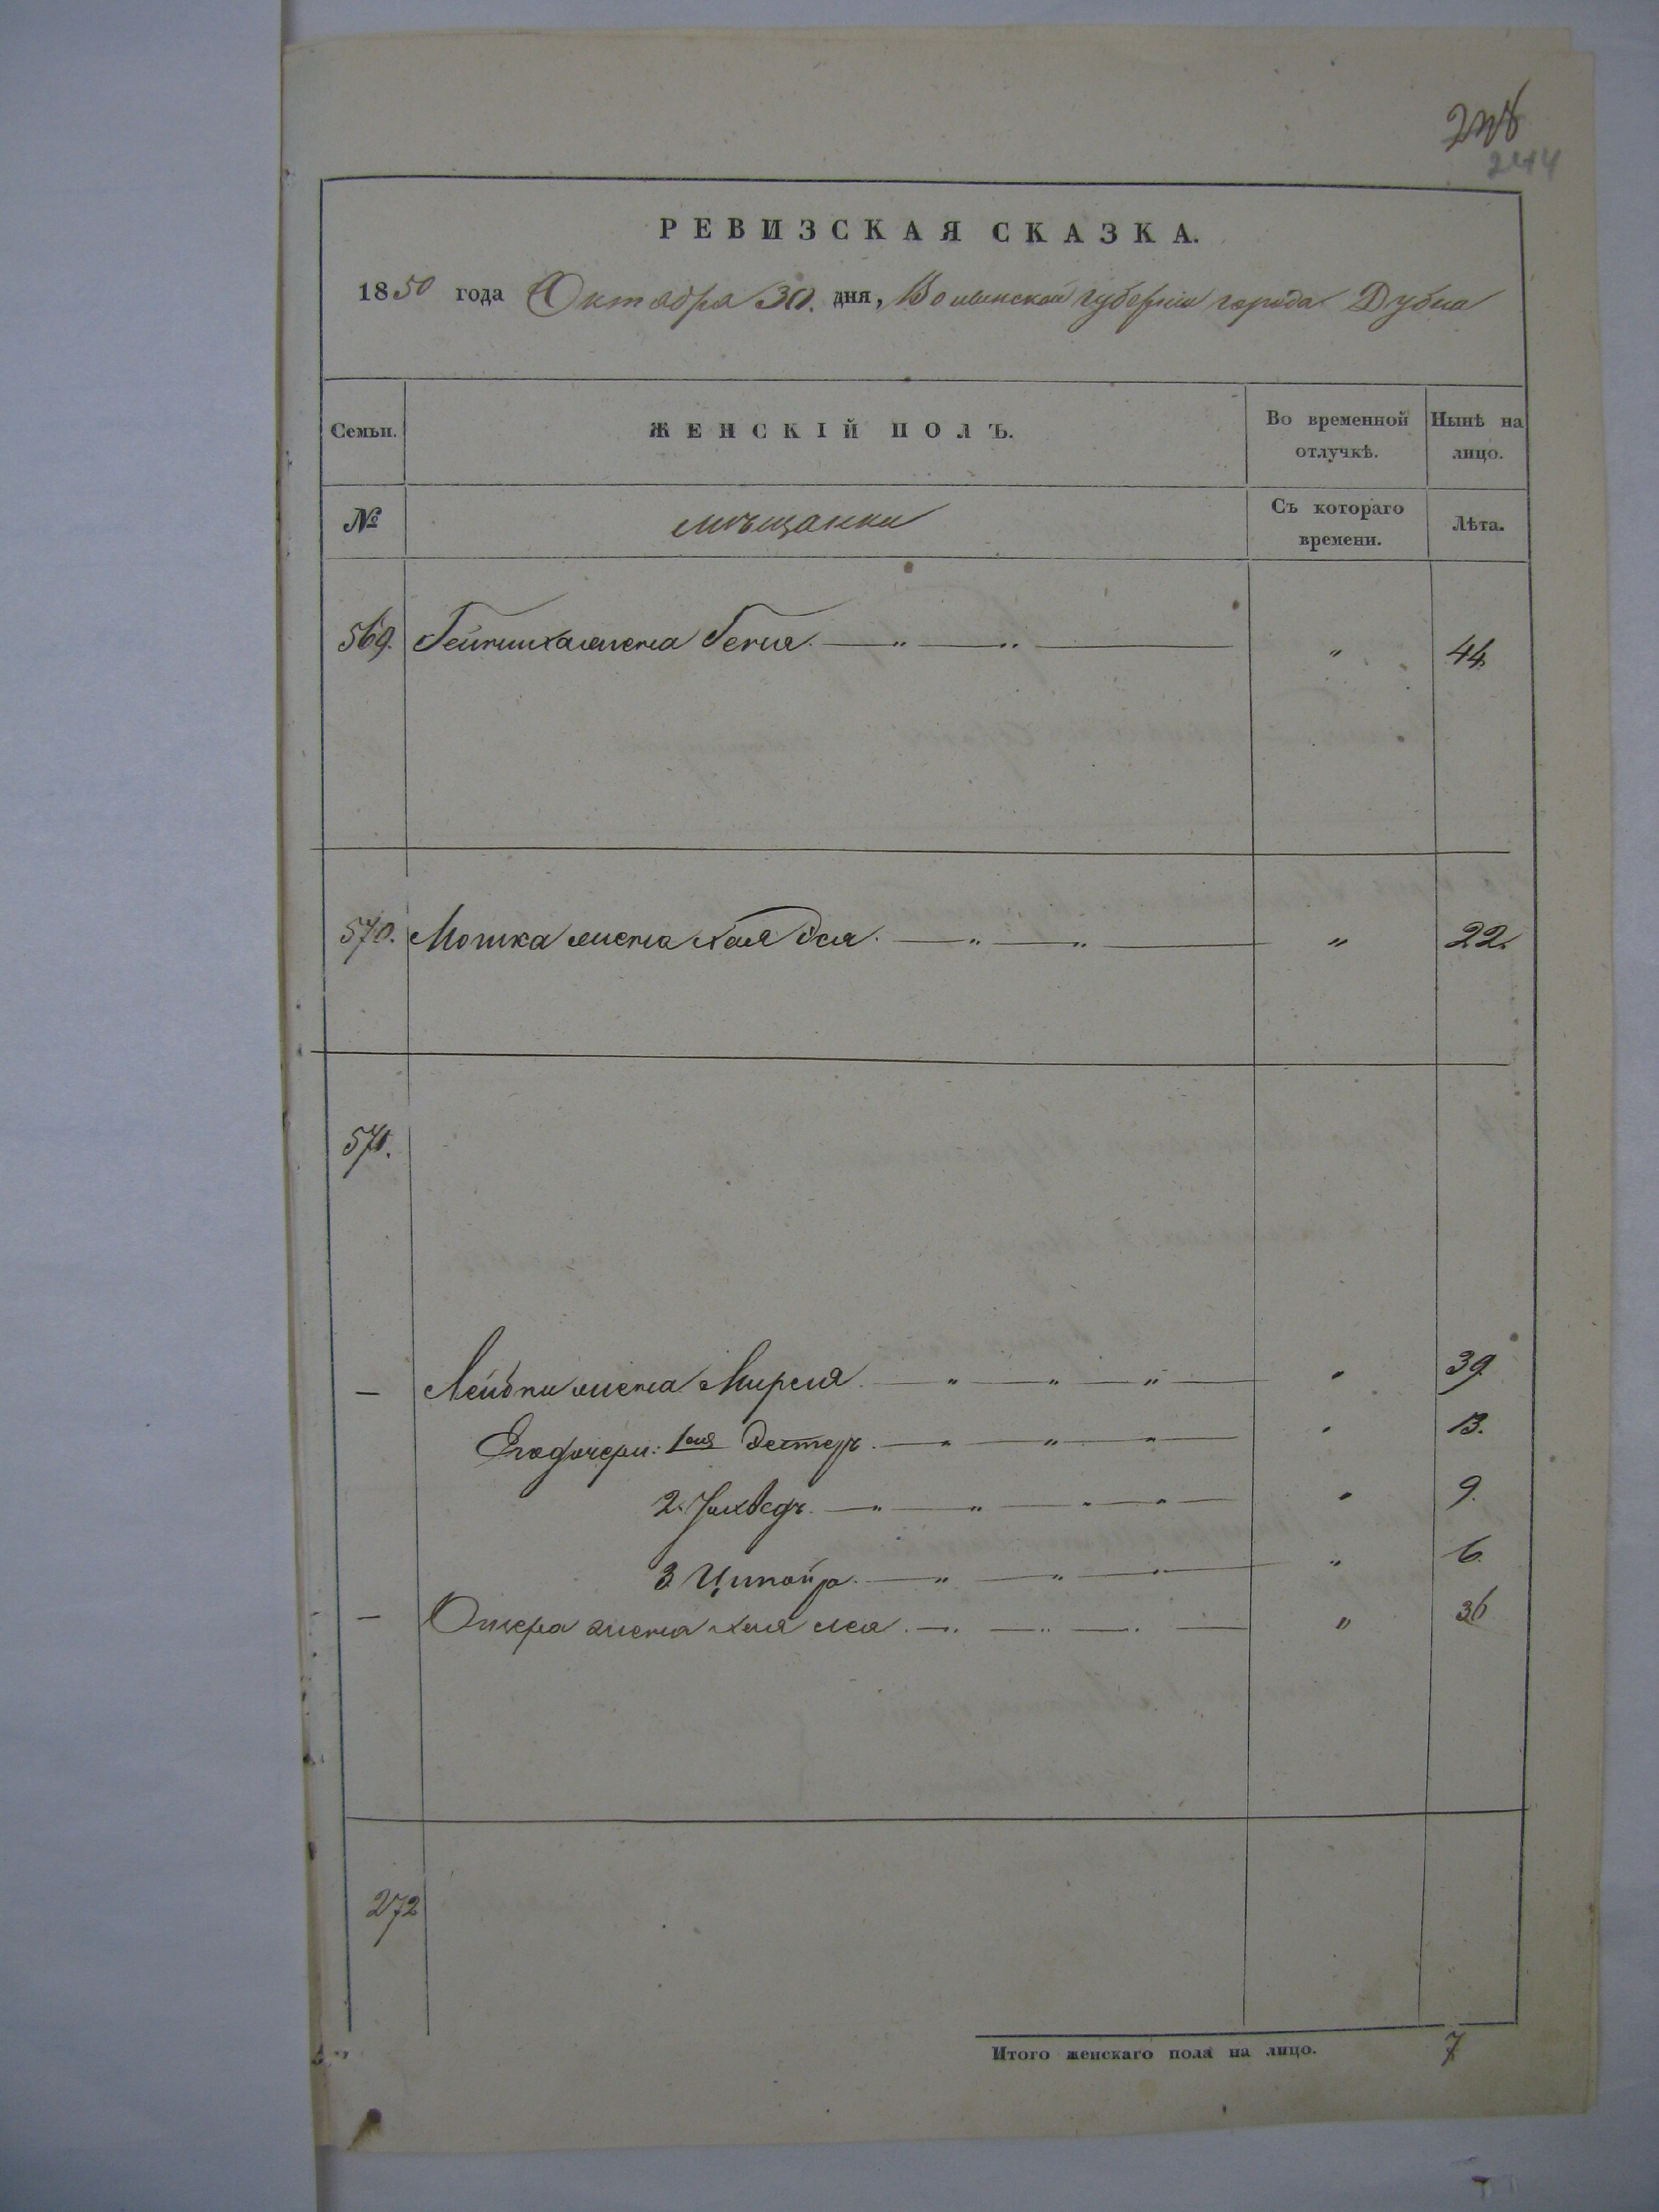 244
РЕВИЗСКАЯ СКАЗКА.
1850 года Октября 30. дня, Волынской губерніи города Дубна
Семьи. ЖЕНСКІЙ ПОЛЪ. Во временной отлучкѣ. Нынѣ на лицо.
№ мѣщанки Съ котораго времени. Лѣта.
569. жена Геня. — " — " — " 44.
570. Мошка жена Хая Эся. — " — " — " 22.
571.
— Лейбы жена Мирля. — " — " — " — " 39.
Его дочери: 1ая Эстеръ. — " — " — " — " 13.
2. Іахведъ. — " — " — " — " — " 9.
3 Ципойра. — " — " — " — " 6.
— Ошера жена Хая Лея. — " — " — " — " 36
272
Итого женскаго пола на лицо. 7